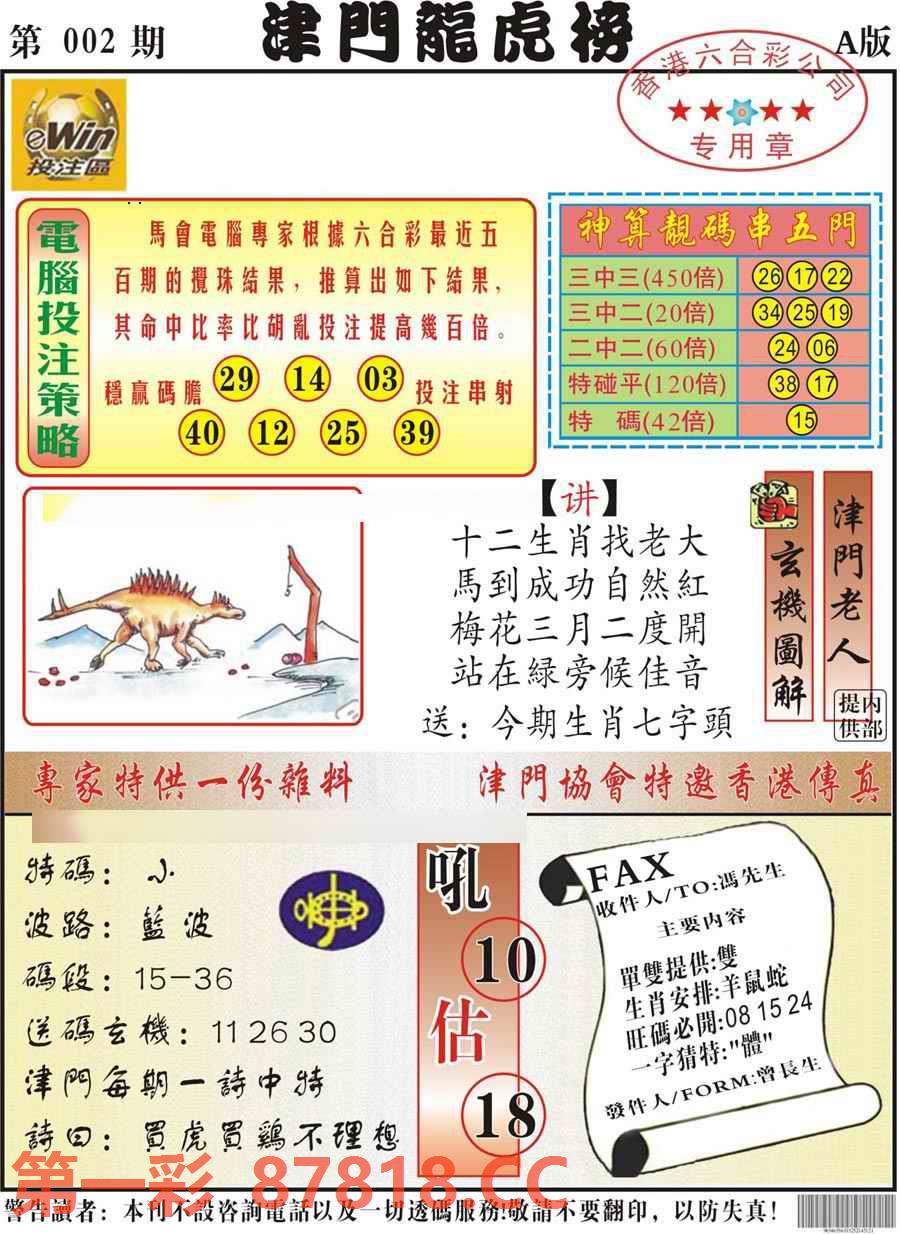 第 002 期
津門龍虎榜
A版
香港六合彩公司
专用章
eWin
投注區
電腦投注策略
馬會電腦專家根據六合彩最近五
百期的攪珠結果，推算出如下結果，
其命中比率比胡亂投注提高幾百倍。
穩贏碼膽 29 14 03 投注串射
40 12 25 39
神算靚碼串五門
三中三(450倍) 26 17 22
三中二(20倍) 34 25 19
二中二(60倍) 24 06
特碰平(120倍) 38 17
特 碼(42倍) 15
【讲】
十二生肖找老大
馬到成功自然紅
梅花三月二度開
站在緑旁候佳音
送：今期生肖七字頭
玄機圖解
津門老人
内部
提供
專家特供一份雜料
津門協會特邀香港傳真
特碼：小
波路：藍波
碼段：15-36
送碼玄機：11 26 30
津門每期一詩中特
詩曰：買虎買鷄不理想
吼
10
估
18
FAX
收件人/TO:馮先生
主要内容
單雙提供:雙
生肖安排:羊鼠蛇
旺碼必開:08 15 24
一字猜特:"體"
發件人/FORM:曾長生
第一彩 87818.CC
警告讀者：本刊不設咨詢電話以及一切透碼服務!敬請不要翻印，以防失真!